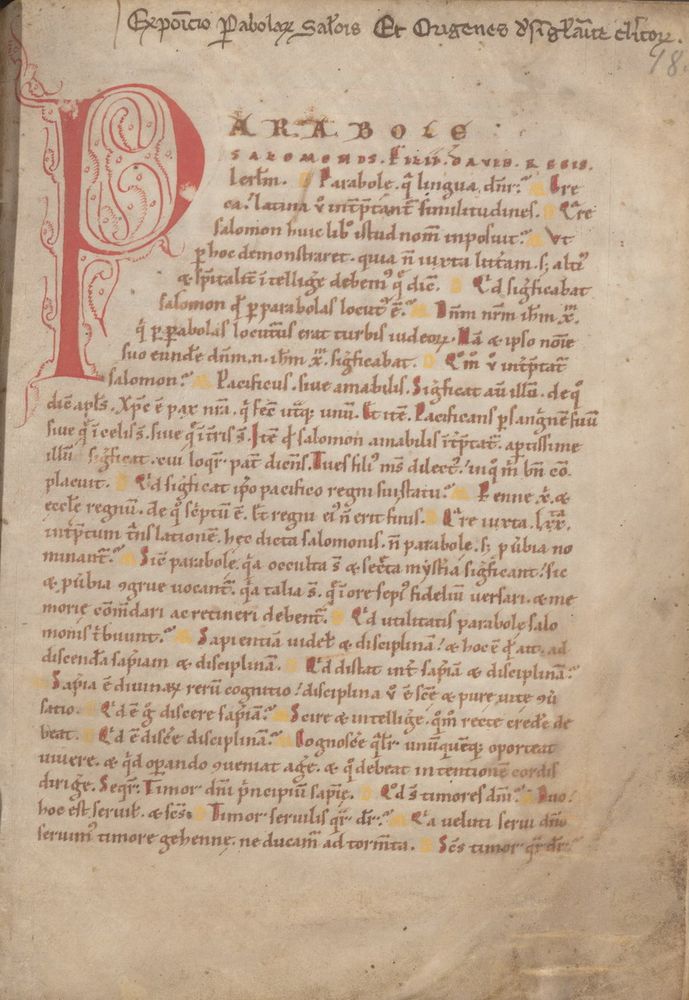 Expoicio Pabolaꝝ Salois Et Origenes
98
PARABOLE
SALOMONIS. FILII. DAVID. REGIS.
Ierl̅m. Parabole. q̇ lingua. dnr̅. Gre
ca. latina v̊ int̅p̅tant̅ similitudines. Qͣre
salomon huic libͦ istud nom̅ inposuit. Vt
ꝑ hoc demonstraret. quia n̅ iuxta litt̅am. sꝫ altiꝰ
& sp̅italit̅ i̅tellig̅e debemꝰ qͦ dic̅. Qͥd sig̅ficabat
salomon qd̅ ꝑ parabolas locutꝰ e̅. Dn̅m nr̅m ih̅m xp̅m.
q̇ ꝑ parabolas locuturus erat turbis iudeoꝝ. Na̅ & ipso no̅ie
suo eunde̅ dn̅m. n. ih̅m xp̅m. sig̅ficabat. Qͦm̊ v̊ int̅p̅tat̅
salomon. Pacificus. siue amabilis. Significat au̅ illu̅. de qͦ
dic̅ apl̅s. Xp̅c e̅ pax nr̅a. q̇ fec̅ utͣqꝫ unu̅. Et ite̅. Pacificans ꝑ sangͥne̅ suu̅
siue q̇ i̅ celis s̅. siue q̇ i̅ t̅ris s̅. Ite̅ qd̅ salomon amabilis i̅t̅p̅tat̅. aptissime
illu̅ significat. cui loqr̅. pat̅ dicens. Tu es filiꝰ mꝰ dilectꝰ. in qͦ m̊ bn̅ co̅
placuit. Qͥd sig̅ficat ip̅o pacifico regni sui statu̅. Penne x̅. &
eccl̅e regnu̅. de qͦ sc̅ptu̅ e̅. Et regni eiꝰ n̅ erit finis. Qͣre iuxta. lxx.
int̅p̅tum t̅nslatione̅. hęc dicta salomonis. n̅ parabole. sꝫ ꝓu̅bia no
minant̅. Sic̅ parabole. qͥa occulta s̅ & sec̅ta myst̅ia sig̅ficant. sic
& ꝓu̅bia ꝯgrue vocant̅. qͥa talia s̅. q̇ i̅ ore sepiꝰ fideliu̅ versari. & me
morie co̅m̅dari ac retineri debent̅. Qͥd utilitatis parabole salo
monis t̅buunt. Sapientia̅ videl̅ & disciplina̅. & hoc e̅ qd̅ ait. ad
discenda̅ sapi̅am & disciplina̅. Qͥd distat int̅ sapi̅a̅ & disciplina̅.
Sapi̅a e̅ divinaꝝ reru̅ cognitio. disciplina v̊ e̅ sc̅e & pure vite ꝯu̅
satio. Qͥd e̅ g̊ discere sapi̅a̅. Scire & intellig̅e. qͦm̊ recte crede̅ de
beat. Qͥd e̅ disc̅e disciplina̅. Cognosc̅e qͣlr̅. unu̅quenqꝫ oporteat
vivere. & qͥd operando ꝯueniat ag̅e. & qͦ debeat intentione̅ cordis
dirig̅e. Seqr̅. Timor dn̅i p̅ncipiu̅ sapi̅ę. Qͦd s̅ timores dn̅i. Duo.
hoc est servil̅. & sc̅s. Timor servilis qͣr̅ dr̅. Qͥa veluti servi dn̅o
serviu̅t timore gehenne. ne ducant̅ ad torm̅ta. Sc̅s timor qͣr̅ dr̅.